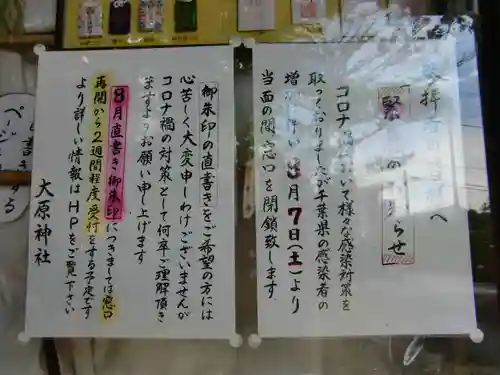 参拝者の皆様へ
緊急のお知らせ
コロナ禍において様々な感染対策を
取っておりましたが千葉県の感染者の
増加に伴い8月7日(土)より
当面の間窓口を閉鎖致します。
御朱印の直書きをご希望の方には
心苦しく大変申しわけございませんが
コロナ禍の対策として何卒ご理解頂き
ますようお願い申し上げます
8月直書き御朱印につきましては窓口
再開から2週間程度受付をする予定です
より詳しい情報はHPをご覧下さい
大原神社